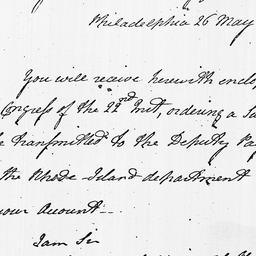 Philadelphia 26 May
You will receive herewith enclo
Congress of the 22nd Inst, ordering a Su
transmitted to the Deputy Pay
the Rhode Island department
your Account--
I am Sir